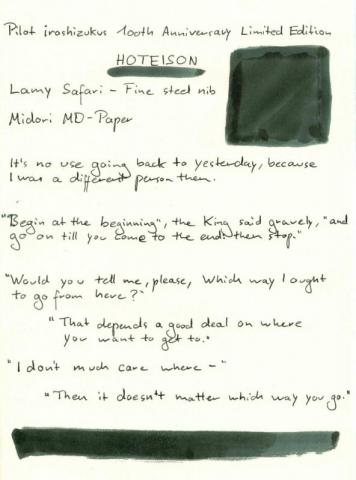 Pilot iroshizukus 100th Anniversary Limited Edition
HOTEISON
Lamy Safari - Fine steel nib
Midori MD-Paper
It's no use going back to yesterday, because
I was a different person then.
"Begin at the beginning", the King said gravely, "and
go on till you come to the end: then stop."
"Would you tell me, please, Which way I ought
to go from here?"
"That depends a good deal on where
you want to get to."
"I don't much care where -"
"Then it doesn't matter which way you go."